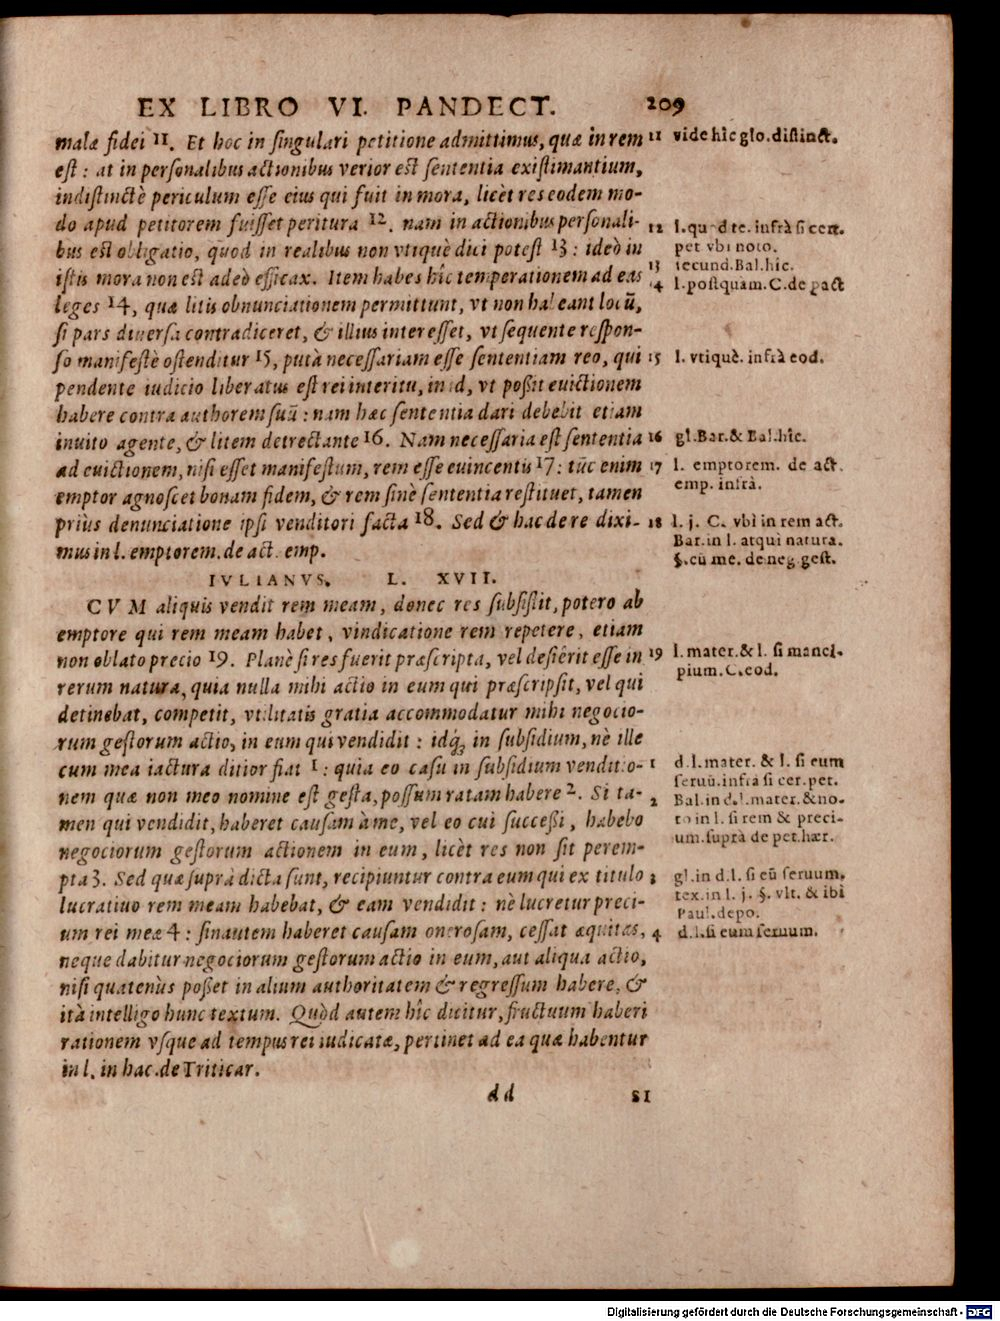 EX LIBRO VI. PANDECT. 209
malæ fidei 11. Et hoc in singulari petitione admittimus, quæ in rem
est : at in personalibus actionibus verior est sententia existimantium,
indistinctè periculum esse eius qui fuit in mora, licèt res eodem mo-
do apud petitorem fuisset peritura 12. nam in actionibus personali-
bus est obligatio, quod in realibus non vtiquè dici potest 13 : ideò in
istis mora non est adeò efficax. Item habes hîc temperationem ad eas
leges 14, quæ litis obnunciationem permittunt, vt non habeant locū,
si pars diuersa contradiceret, & illius interesset, vt sequente respon-
so manifestè ostenditur 15, putà necessariam esse sententiam reo, qui
pendente iudicio liberatus est rei interitu, in id, vt poßit euictionem
habere contra authorem suū : nam hæc sententia dari debebit etiam
inuito agente, & litem detrectante 16. Nam necessaria est sententia
ad euictionem, nisi esset manifestum, rem esse euincentis 17 : tūc enim
emptor agnoscet bonam fidem, & rem sinè sententia restituet, tamen
priùs denunciatione ipsi venditori facta 18. Sed & hac de re dixi-
mus in l. emptorem. de act. emp.
IVLIANVS. L. XVII.
CVM aliquis vendit rem meam, donec res subsistit, potero ab
emptore qui rem meam habet, vindicatione rem repetere, etiam
non oblato precio 19. Planè si res fuerit præscripta, vel desiêrit esse in
rerum natura, quia nulla mihi actio in eum qui præscripsit, vel qui
detinebat, competit, vtilitatis gratia accommodatur mihi negocio-
rum gestorum actio, in eum qui vendidit : idq́; in subsidium, nè ille
cum mea iactura ditior fiat 1 : quia eo casu in subsidium venditio-
nem quæ non meo nomine est gesta, possum ratam habere 2. Si ta-
men qui vendidit, haberet causam à me, vel eo cui succeßi, habebo
negociorum gestorum actionem in eum, licèt res non sit perem-
pta 3. Sed quæ suprà dicta sunt, recipiuntur contra eum qui ex titulo
lucratiuo rem meam habebat, & eam vendidit : nè lucretur preci-
um rei meæ 4 : sinautem haberet causam onerosam, cessat æquitas,
neque dabitur negociorum gestorum actio in eum, aut aliqua actio,
nisi quatenùs poßet in alium authoritatem & regressum habere, &
ità intelligo hunc textum. Quòd autem hîc dicitur, fructuum haberi
rationem vsque ad tempus rei iudicatæ, pertinet ad ea quæ habentur
in l. in hac. de Triticar.
dd SI
11 vide hîc glo. distinct.
12 l. quod te. infrà si cert.
pet. vbi noto.
13 secund. Bal. hîc.
14 l. postquam. C. de pact
15 l. vtiquè. infrà eod.
16 gl. Bar. & Bal. hîc.
17 l. emptorem. de act.
emp. infrà.
18 l. j. C. vbi in rem act.
Bar. in l. atqui natura.
§. cū me. de neg. gest.
19 l. mater. & l. si manci-
pium. C. eod.
1 d. l. mater. & l. si eum
seruū. infrà si cer. pet.
2 Bal. in d. l. mater. & no-
to in l. si rem & preci-
um. suprà de pet. hær.
3 gl. in d. l. si eū seruum.
tex. in l. j. §. vlt. & ibi
Paul. depo.
4 d. l. si eum seruum.
Digitalisierung gefördert durch die Deutsche Forschungsgemeinschaft - DFG